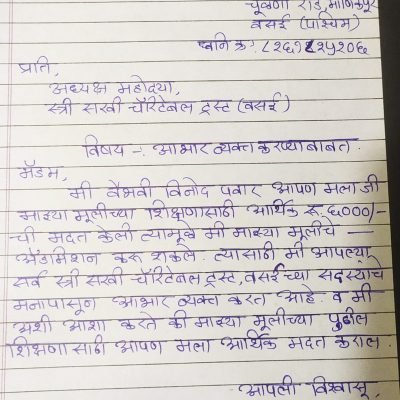 चूळणा रोड, माणिकपूर
वसई (पश्चिम)
प्रति,
अध्यक्ष महोदया,
स्त्री सखी चॅरिटेबल ट्रस्ट (वसई)
विषय -: आभार व्यक्त करण्याबाबत.
मॅडम,
मी वैभवी विनोद पवार आपण मला जी
माझ्या मूलीच्या शिक्षणासाठी आर्थिक रू. ६०००/-
ची मदत केली त्यामूळे मी माझ्या मूलीचे —
अॅडमिशन करू शकले. त्यासाठी मी आपल्या
सर्व स्त्री सखी चॅरिटेबल ट्रस्ट, वसई च्या सदस्यांचे
मनापासून आभार व्यक्त करत आहे. व मी
अशी आशा करते की माझ्या मूलीच्या पुढील
शिक्षणासाठी आपण मला आर्थिक मदत कराल.
आपली विश्वासू,